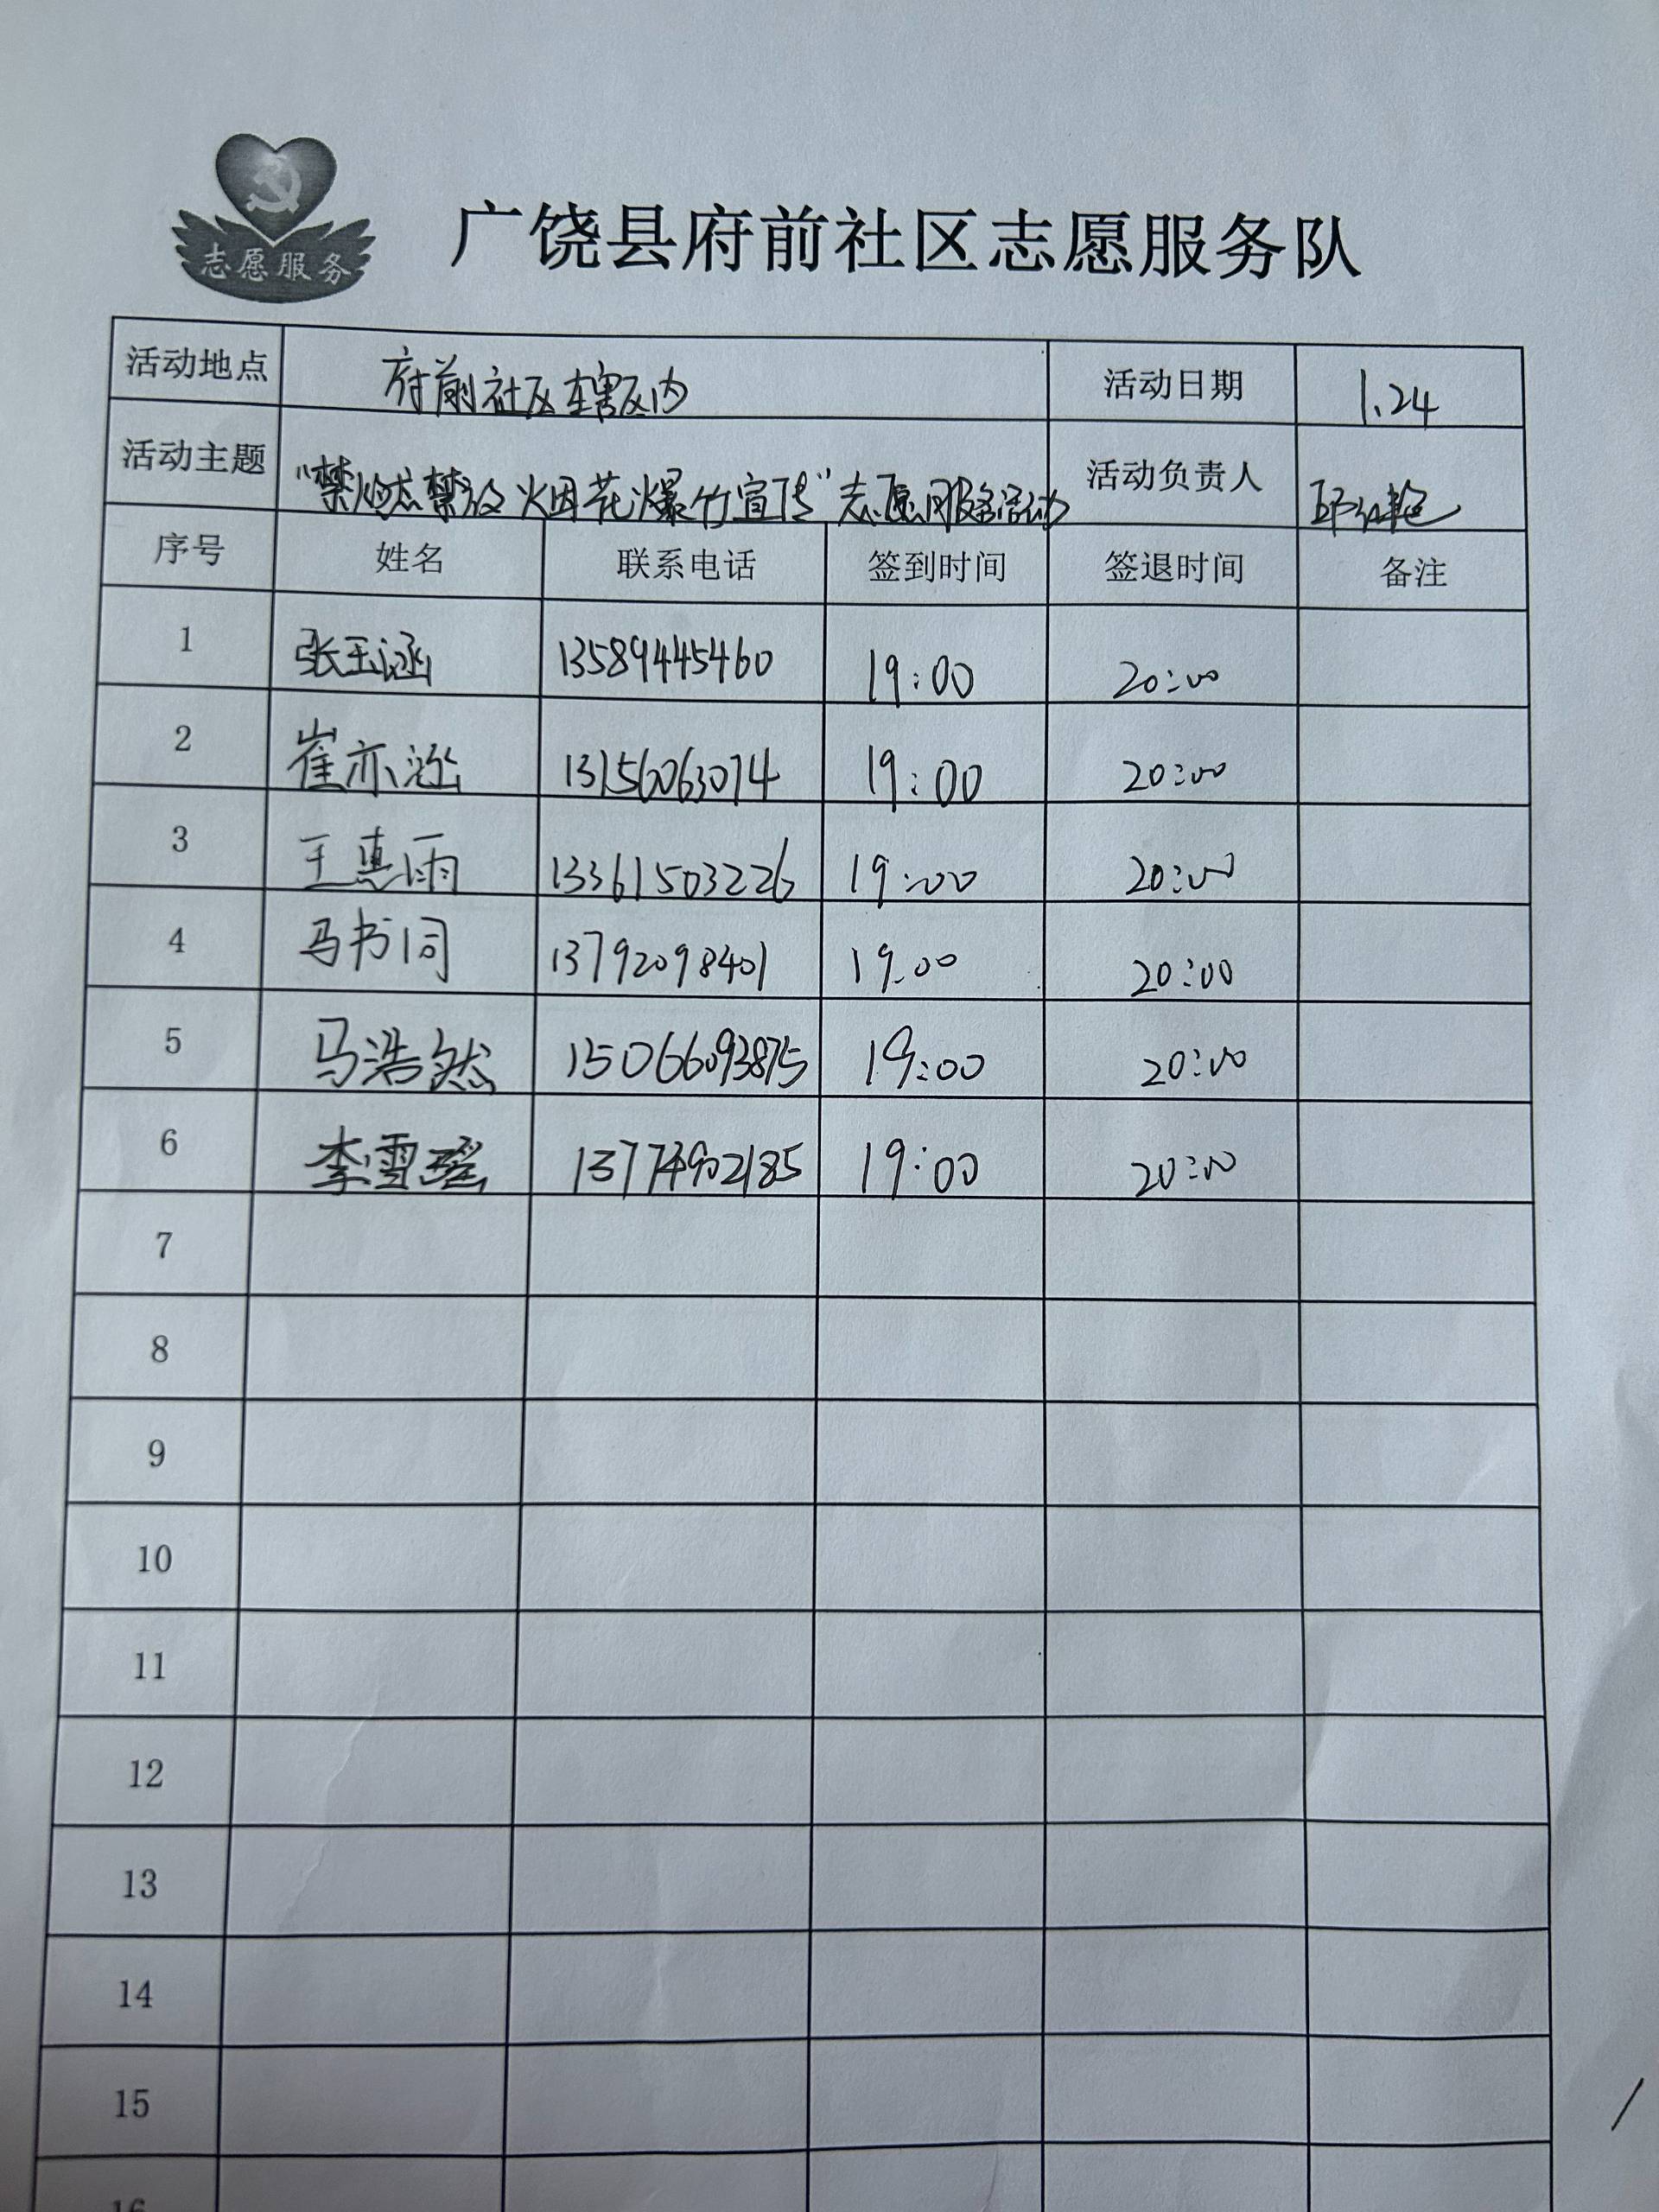 志愿服务
广饶县府前社区志愿服务队
活动地点 府前社区辖区内 活动日期 1.24
活动主题 “禁燃禁放烟花爆竹宣传”志愿服务活动 活动负责人
序号 姓名 联系电话 签到时间 签退时间 备注
1 张玉涵 13589445460 19:00 20:00
2 崔亦 13156063074 19:00 20:00
3 王惠雨 13361503226 19:00 20:00
4 马书同 13792098401 19:00 20:00
5 马浩然 15066093875 19:00 20:00
6 李雪瑶 19:00 20:00
7
8
9
10
11
12
13
14
15
16